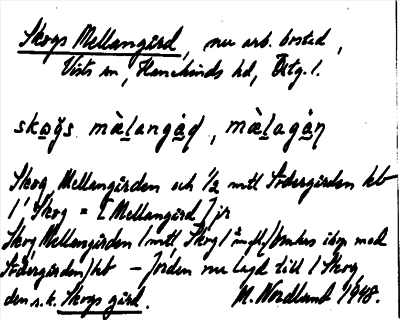 Skogs Mellangård, nu arb. bostad,
Vists sn, Hanekinds hd, Östg. l.
skogs màlangåḍ, màlagåṇ
Skog, Mellangården och 1/2 mtl Södergården kb
1, Skog = [Mellangård] jr
Skog, Mellangården 1 mtl, Skog
Södergården/kb – Jorden nu lagd till 1 Skog,
den s.k. Skogs gård. M. Nordlund 1948.